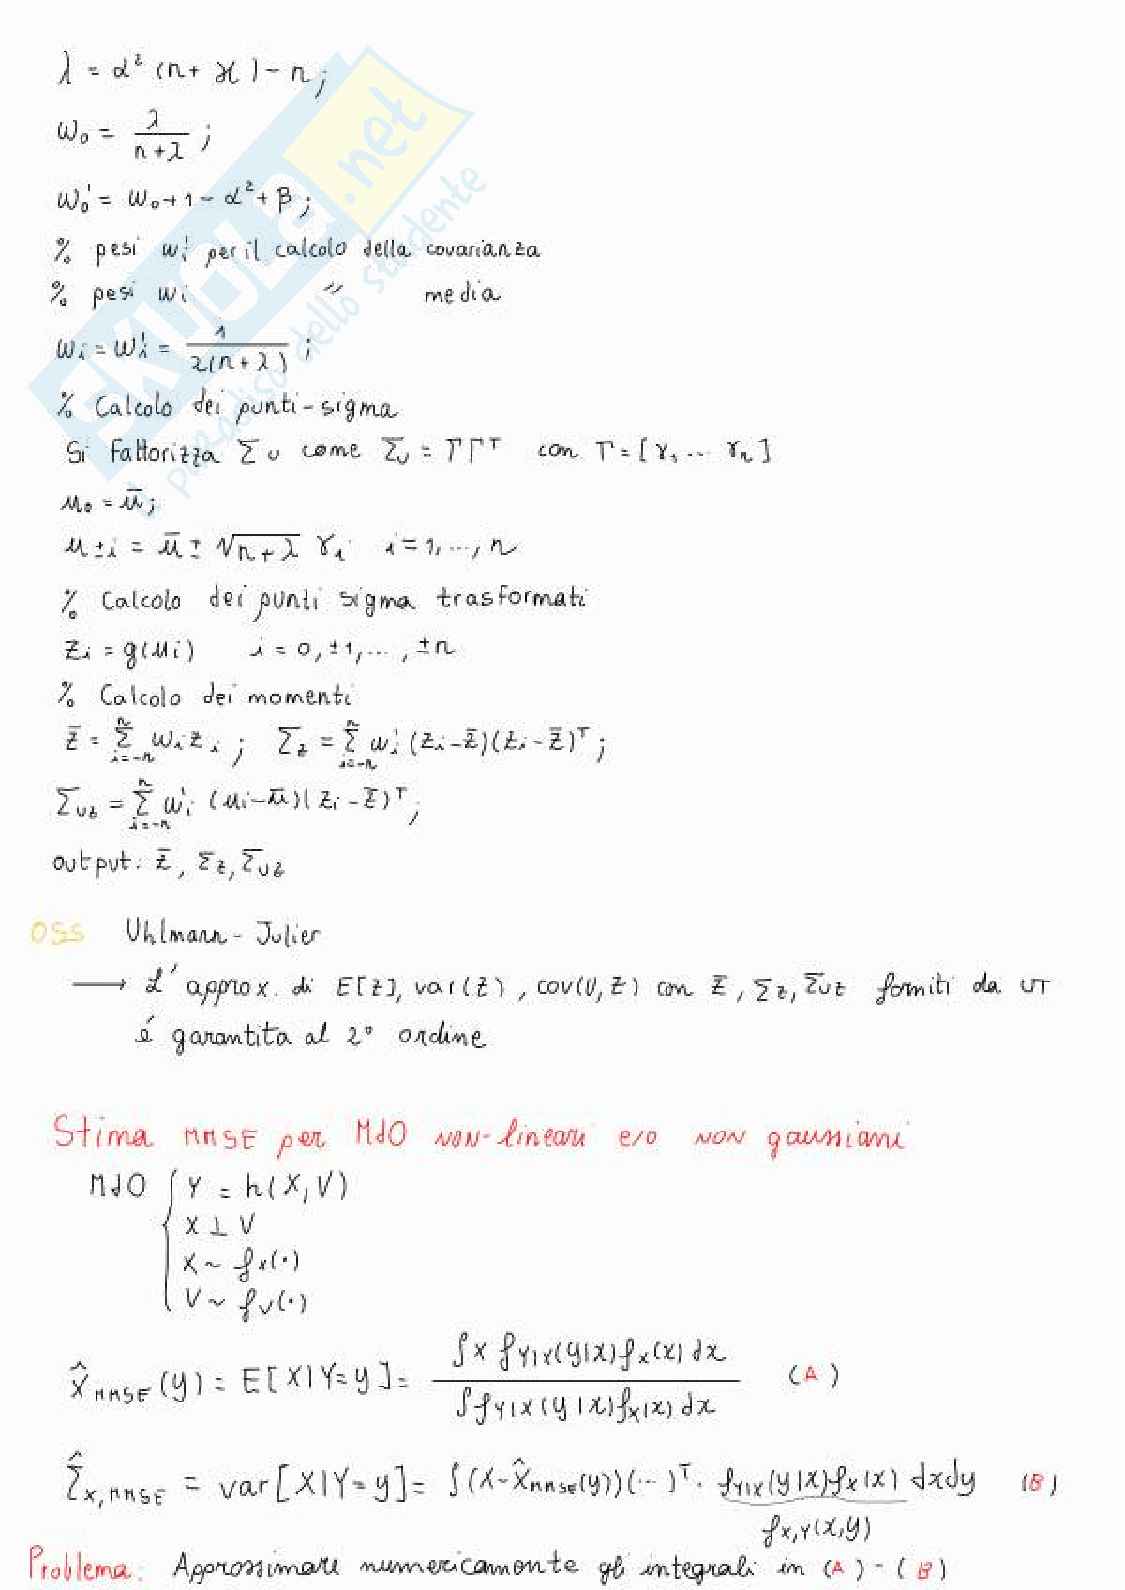 λ = α² (n + ϰ) - n ;
ω₀ = λ / (n + λ) ;
ω₀' = ω₀ + 1 - α² + β ;
% pesi wᵢ' per il calcolo della covarianza
% pesi wᵢ " media
ωᵢ = ωᵢ' = 1 / (2(n + λ)) ;
% Calcolo dei punti-sigma
Si fattorizza Σᵤ come Σᵤ = ΓΓᵀ con Γ = [γ₁ ... γₙ]
u₀ = ū ;
u±ᵢ = ū ± √(n + λ) γᵢ i = 1, ..., n
% Calcolo dei punti sigma trasformati
zᵢ = g(uᵢ) i = 0, ±1, ... , ±n
% Calcolo dei momenti
z̄ = Σᵢ₌₋ₙⁿ wᵢ zᵢ ; Σz = Σᵢ₌₋ₙⁿ wᵢ' (zᵢ - z̄)(zᵢ - z̄)ᵀ ;
Σuz = Σᵢ₌₋ₙⁿ wᵢ' (uᵢ - ū)(zᵢ - z̄)ᵀ ;
output: z̄ , Σz, Σuz
OSS Uhlmann - Julier
→ L'approx. di E[z], var(z) , cov(U, z) con z̄ , Σz, Σuz forniti da UT
é garantita al 2° ordine
Stima MMSE per MdO NON-lineari e/o NON gaussiani
MdO { Y = h(X, V)
X ⊥ V
X ~ fx(·)
V ~ fv(·)
X̂MMSE (y) = E[X|Y=y] = ∫x fY|X(y|x) fx(x) dx / ∫fY|X (y|x) fX(x) dx (A)
Σ̂x,MMSE = var[X|Y=y] = ∫(x - X̂MMSE(y))(...)ᵀ · fY|X(y|x) fx(x) dxdy (B)
fX,Y(x,y)
Problema: Approssimare numericamente gli integrali in (A) - (B)
skuola.net
il paradiso dello studente